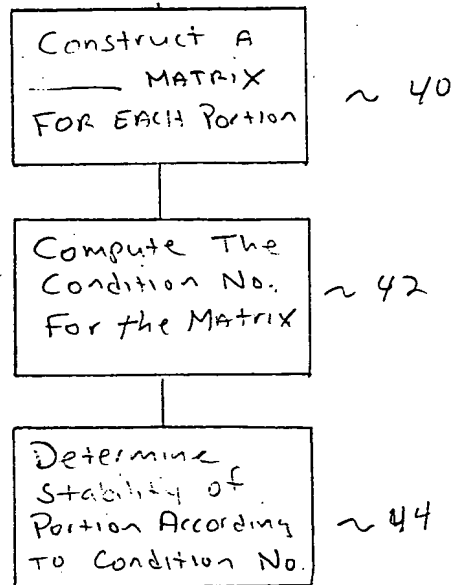 Construct A
______ MATRIX
FOR EACH Portion
~ 40
Compute The
Condition No.
For the MATRIX
~ 42
Determine
Stability of
Portion According
To Condition No.
~ 44